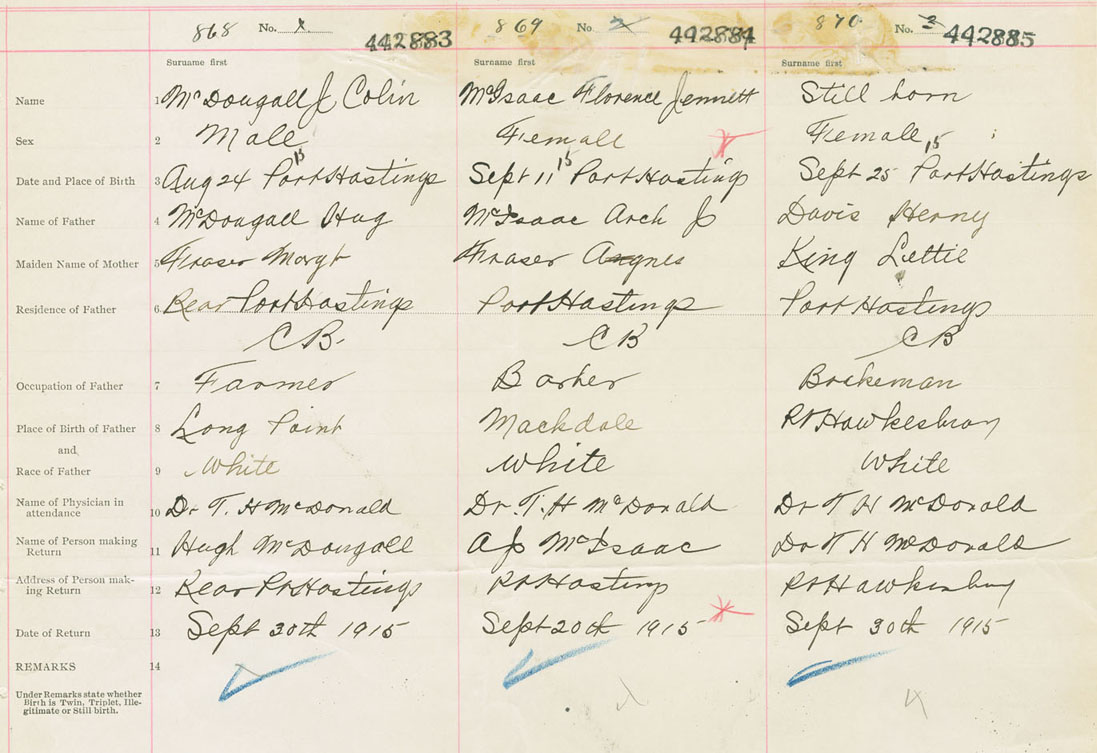 868 No. 1. 442883 869 No. 2 442884 870 No. 3 442885
Surname first Surname first Surname first
Name 1 McDougall J Colin McIsaac Florence Jennett Still born
Sex 2 Male Female Female
Date and Place of Birth 3 Aug 24 15 Port Hastings Sept 11 15 Port Hastings Sept 25 15 Port Hastings
Name of Father 4 McDougall Hug McIsaac Arch J Davis Henry
Maiden Name of Mother 5 Fraser Margt Fraser Angnes King Lettie
Residence of Father 6 Rear Port Hastings Port Hastings Port Hastings
C B. C B C B
Occupation of Father 7 Farmer Barber Brakeman
Place of Birth of Father 8 Long Point Mackdale Pt Hawkesbury
and
Race of Father 9 White White White
Name of Physician in
attendance 10 Dr T. H McDonald Dr. T. H McDonald Dr T H McDonald
Name of Person making
Return 11 Hugh McDougall A J McIsaac Dr T H McDonald
Address of Person mak-
ing Return 12 Rear Pt Hastings Pt Hastings Pt Hawkesbury
Date of Return 13 Sept 30th 1915 Sept 20th 1915 Sept 30th 1915
REMARKS 14
Under Remarks state whether
Birth is Twin, Triplet, Ille-
gitimate or Still birth.